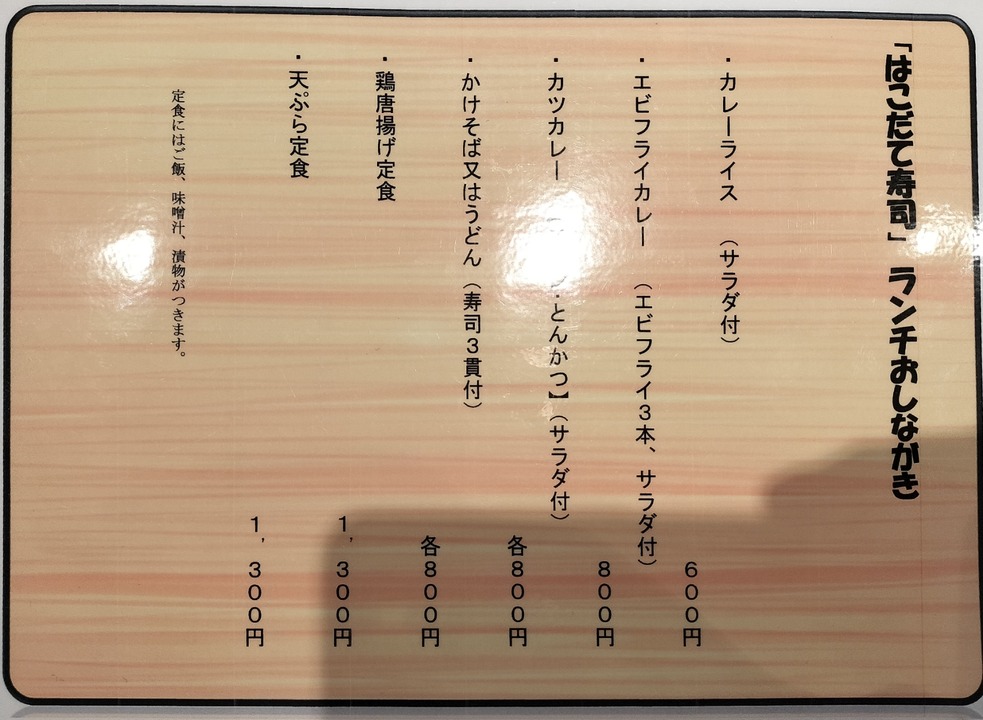 「はこだて寿司」 ランチおしながき
・カレーライス （サラダ付）
６００円
・エビフライカレー （エビフライ３本、サラダ付）
８００円
・カツカレー ・とんかつ】（サラダ付）
各８００円
・かけそば又はうどん （寿司３貫付）
各８００円
・鶏唐揚げ定食
１，３００円
・天ぷら定食
１，３００円
定食にはご飯、味噌汁、漬物がつきます。